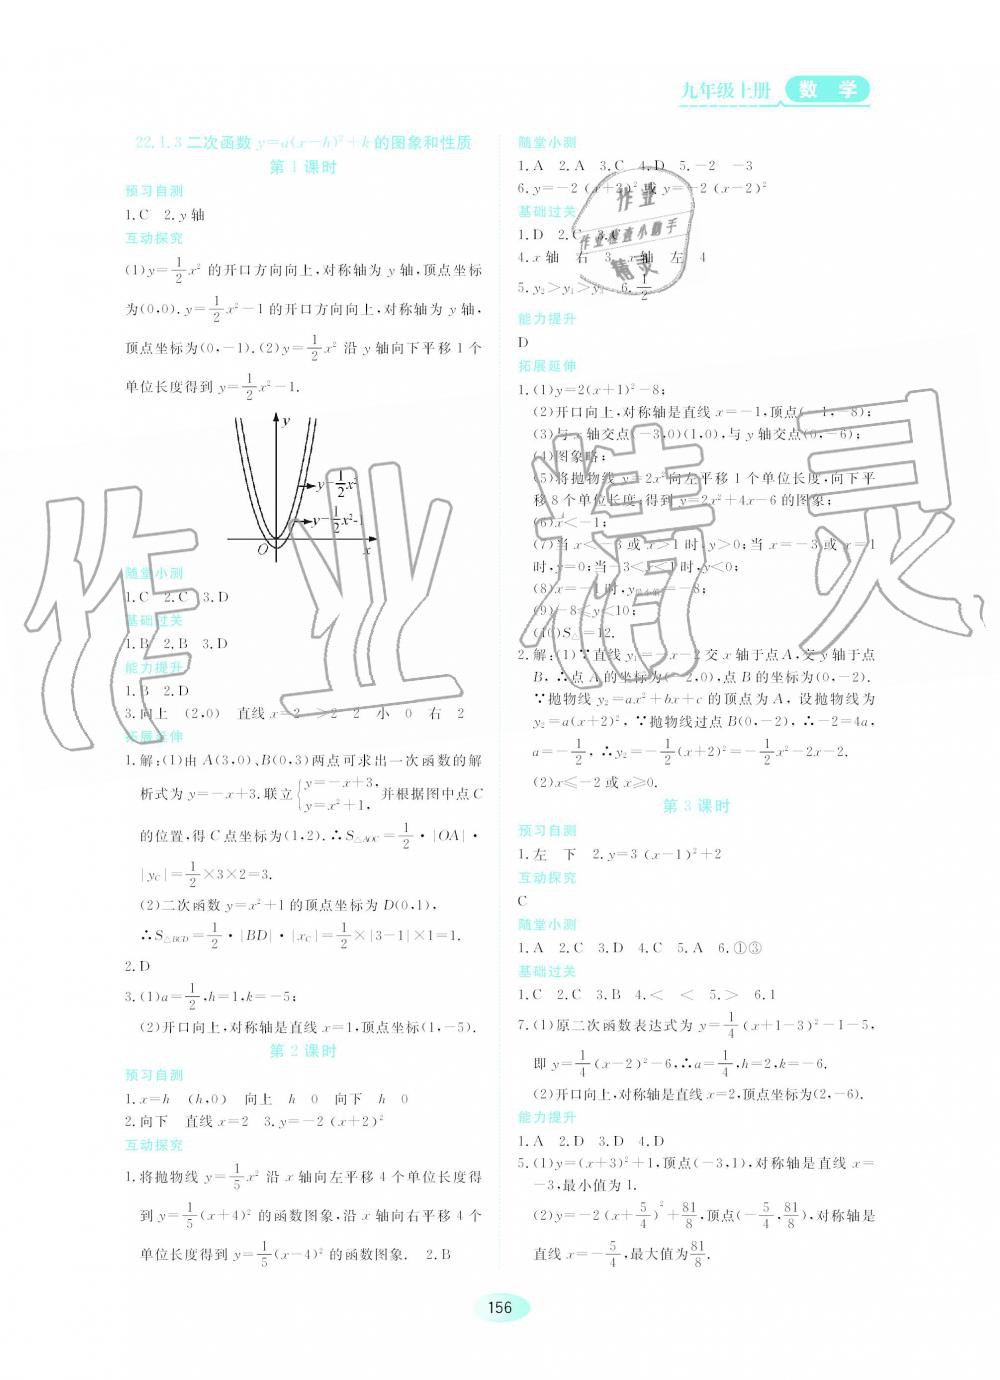 九年级上册 数学
22.1.3 二次函数 y=a(x-h)²+k 的图象和性质
第 1 课时
预习自测
1.C 2.y 轴
互动探究
(1)y=1/2x² 的开口方向向上,对称轴为 y 轴,顶点坐标
为(0,0).y=1/2x²-1 的开口方向向上,对称轴为 y 轴,
顶点坐标为(0,-1).(2)y=1/2x² 沿 y 轴向下平移 1 个
单位长度得到 y=1/2x²-1.
y
y=1/2x²
y=1/2x²-1
O x
随堂小测
1.C 2.C 3.D
基础过关
1.B 2.B 3.D
能力提升
1.B 2.D
3.向上 (2,0) 直线 x=2 ≥2 2 小 0 右 2
拓展延伸
1.解:(1)由 A(3,0)、B(0,3)两点可求出一次函数的解
析式为 y=-x+3.联立{y=-x+3, y=x²+1, 并根据图中点 C
的位置,得 C 点坐标为(1,2).∴S△AOC=1/2·|OA|·
|yC|=1/2×3×2=3.
(2)二次函数 y=x²+1 的顶点坐标为 D(0,1),
∴S△BCD=1/2·|BD|·|xC|=1/2×|3-1|×1=1.
2.D
3.(1)a=1/2,h=1,k=-5;
(2)开口向上,对称轴是直线 x=1,顶点坐标(1,-5).
第 2 课时
预习自测
1.x=h (h,0) 向上 h 0 向下 h 0
2.向下 直线 x=2 3.y=-2(x+2)²
互动探究
1.将抛物线 y=1/5x² 沿 x 轴向左平移 4 个单位长度得
到 y=1/5(x+4)² 的函数图象,沿 x 轴向右平移 4 个
单位长度得到 y=1/5(x-4)² 的函数图象. 2.B
随堂小测
1.A 2.A 3.C 4.D 5.-2 -3
6.y=-2(x+2)² 或 y=-2(x-2)²
基础过关
1.D 2.C 3.C
4.x 轴 右 3 x 轴 左 4
5.y₂>y₁>y₃ 6.1/2
能力提升
D
拓展延伸
1.(1)y=2(x+1)²-8;
(2)开口向上,对称轴是直线 x=-1,顶点(-1,-8);
(3)与 x 轴交点(-3,0)(1,0),与 y 轴交点(0,-6);
(4)图象略;
(5)将抛物线 y=2x² 向左平移 1 个单位长度,向下平
移 8 个单位长度,得到 y=2x²+4x-6 的图象;
(6)x<-1;
(7)当 x<-3 或 x>1 时,y>0;当 x=-3 或 x=1
时,y=0;当-3<x<1 时,y<0;
(8)x=-1 时,y最小值=-8;
(9)-8≤y<10;
(10)S△=12.
2.解:(1)∵直线 y₁=-x-2 交 x 轴于点 A,交 y 轴于点
B,∴点 A 的坐标为(-2,0),点 B 的坐标为(0,-2).
∵抛物线 y₂=ax²+bx+c 的顶点为 A,设抛物线为
y₂=a(x+2)²,∵抛物线过点 B(0,-2),∴-2=4a,
a=-1/2,∴y₂=-1/2(x+2)²=-1/2x²-2x-2.
(2)x≤-2 或 x≥0.
第 3 课时
预习自测
1.左 下 2.y=3(x-1)²+2
互动探究
C
随堂小测
1.A 2.C 3.D 4.C 5.A 6.①③
基础过关
1.C 2.C 3.B 4.< < 5.> 6.1
7.(1)原二次函数表达式为 y=1/4(x+1-3)²-1-5,
即 y=1/4(x-2)²-6,∴a=1/4,h=2,k=-6.
(2)开口向上,对称轴是直线 x=2,顶点坐标为(2,-6).
能力提升
1.A 2.D 3.D 4.D
5.(1)y=(x+3)²+1,顶点(-3,1),对称轴是直线 x=
-3,最小值为 1.
(2)y=-2(x+5/4)²+81/8,顶点(-5/4,81/8),对称轴是
直线 x=-5/4,最大值为81/8.
156
作业精灵
作业
作业检查小助手
精灵